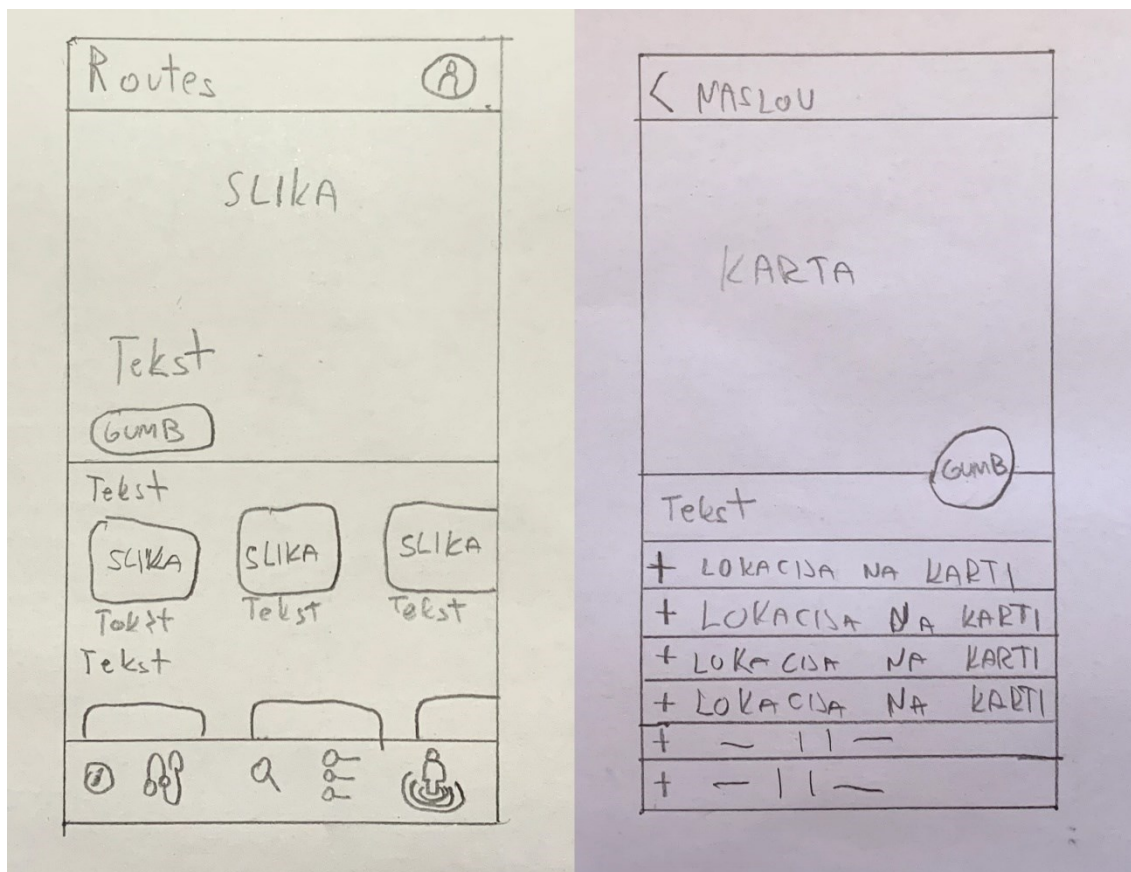 Routes
SLIKA
Tekst
GUMB
Tekst
SLIKA SLIKA SLIKA
Tekst Tekst Tekst
Tekst
< NASLOV
KARTA
GUMB
Tekst
+ LOKACIJA NA KARTI
+ LOKACIJA NA KARTI
+ LOKACIJA NA KARTI
+ LOKACIJA NA KARTI
+ — || —
+ — || —